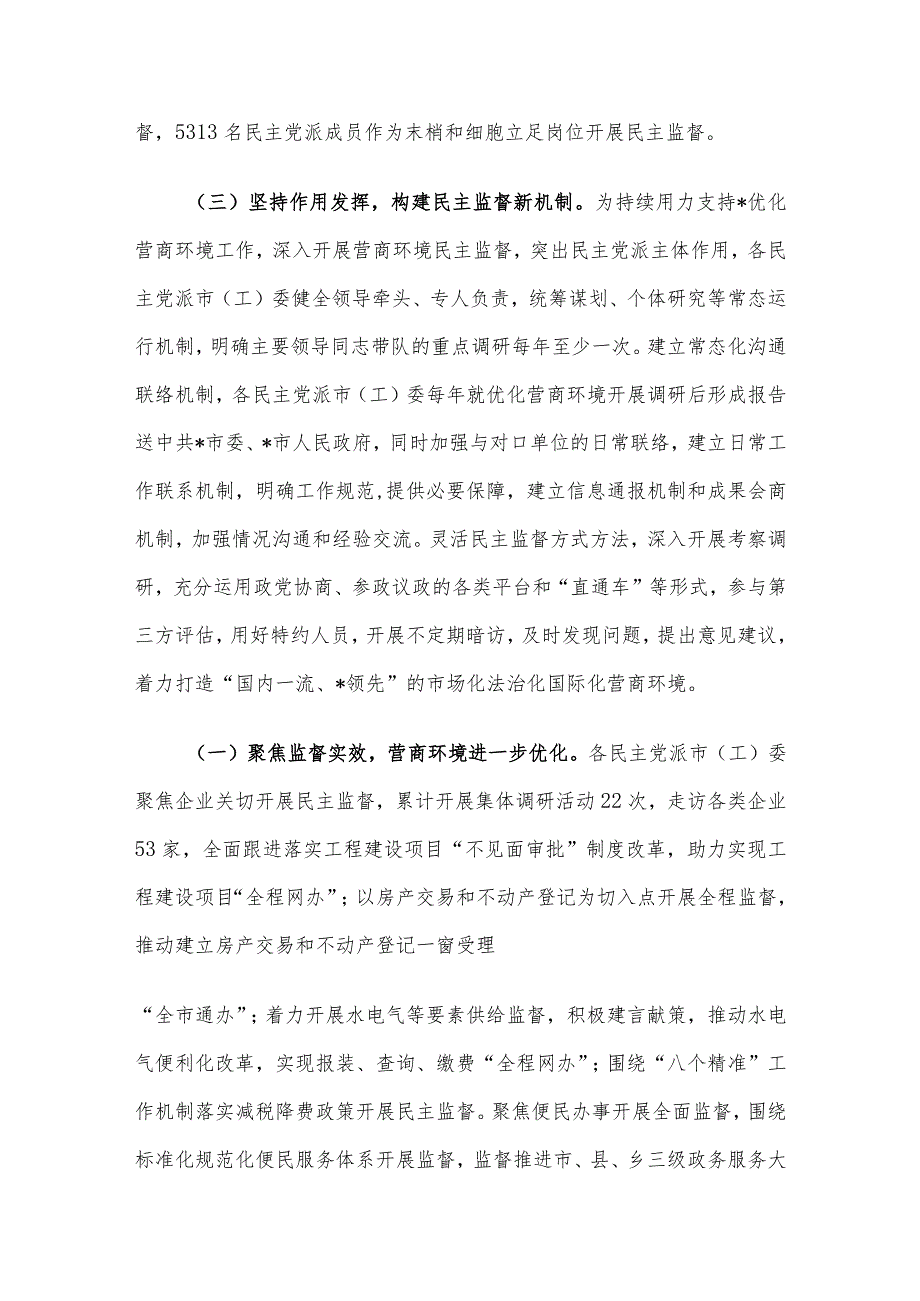 督，5313 名民主党派成员作为末梢和细胞立足岗位开展民主监督。
（三）坚持作用发挥，构建民主监督新机制。为持续用力支持*优化
营商环境工作，深入开展营商环境民主监督，突出民主党派主体作用，各民
主党派市（工）委健全领导牵头、专人负责，统筹谋划、个体研究等常态运
行机制，明确主要领导同志带队的重点调研每年至少一次。建立常态化沟通
联络机制，各民主党派市（工）委每年就优化营商环境开展调研后形成报告
送中共*市委、*市人民政府，同时加强与对口单位的日常联络，建立日常工
作联系机制，明确工作规范,提供必要保障，建立信息通报机制和成果会商
机制，加强情况沟通和经验交流。灵活民主监督方式方法，深入开展考察调
研，充分运用政党协商、参政议政的各类平台和“直通车”等形式，参与第
三方评估，用好特约人员，开展不定期暗访，及时发现问题，提出意见建议，
着力打造“国内一流、*领先”的市场化法治化国际化营商环境。
（一）聚焦监督实效，营商环境进一步优化。各民主党派市（工）委
聚焦企业关切开展民主监督，累计开展集体调研活动 22 次，走访各类企业
53 家，全面跟进落实工程建设项目“不见面审批”制度改革，助力实现工
程建设项目“全程网办”；以房产交易和不动产登记为切入点开展全程监督，
推动建立房产交易和不动产登记一窗受理
“全市通办”；着力开展水电气等要素供给监督，积极建言献策，推动水电
气便利化改革，实现报装、查询、缴费“全程网办”；围绕“八个精准”工
作机制落实减税降费政策开展民主监督。聚焦便民办事开展全面监督，围绕
标准化规范化便民服务体系开展监督，监督推进市、县、乡三级政务服务大